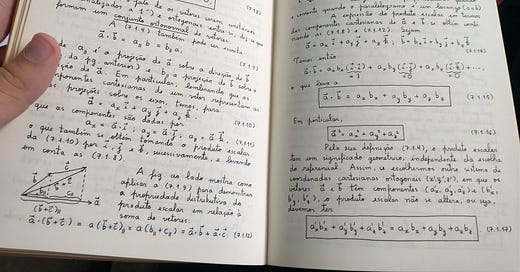 o fato de os vetores serem unitários
(normalizados a 1) e ortogonais entre si, diz-se que
formam um conjunto ortonormal de vetores.
A (7.1.4) também pode ser escrita
a⃗·b⃗ = a_b b = b_a a, (7.1.9)
de a_b é a projeção de a⃗ sobre a direção de b⃗
da fig. anterior) e b_a a projeção de b⃗ sobre a
direção de a⃗. Em particular, lembrando que as
componentes cartesianas de um vetor representam as
projeções sobre os eixos, temos, para
a⃗ = a_x î + a_y ĵ + a_z k̂,
que as componentes são dadas por
a_x = a⃗·î, a_y = a⃗·ĵ, a_z = a⃗·k̂, (7.1.11)
o que também se obtém, tomando o produto escalar
da (7.1.10) por î, ĵ e k̂, sucessivamente, e levando
em conta as (7.1.8).
A fig. ao lado mostra como
aplicar a (7.1.9) para demonstrar
a propriedade distributiva do
produto escalar em relação à
soma de vetores:
a⃗·(b⃗+c⃗) = a (b⃗+c⃗)_a = a (b_a + c_a) = a⃗·b⃗ + a⃗·c⃗. (7.1.12)
somente quando o paralelogramo é um losango (a=b).
A expressão do produto escalar em termos
das componentes cartesianas de a⃗ e b⃗ se obtém
usando as (7.1.8) e (7.1.12). Sejam
a⃗ = a_x î + a_y ĵ + a_z k̂, b⃗ = b_x î + b_y ĵ + b_z k̂
Temos então
a⃗·b⃗ = a_x b_x (î·î) + a_x b_y (î·ĵ) + a_x b_z (î·k̂) + ...,
=1 =0 =0
o que leva a
a⃗·b⃗ = a_x b_x + a_y b_y + a_z b_z (7.1.15)
Em particular,
a⃗² = a_x² + a_y² + a_z² (7.1.16)
Pela sua definição (7.1.4), o produto escalar
tem um significado geométrico, independente da escolha
do referencial. Assim, se escolhermos outro sistema de
coordenadas cartesianas ortogonais (x'y'z'), em que os
vetores a⃗ e b⃗ têm componentes (a'_x, a'_y, a'_z) e (b'_x,
b'_y, b'_z), o produto escalar não se altera, ou seja,
devemos ter
a'_x b'_x + a'_y b'_y + a'_z b'_z = a_x b_x + a_y b_y + a_z b_z (7.1.17)